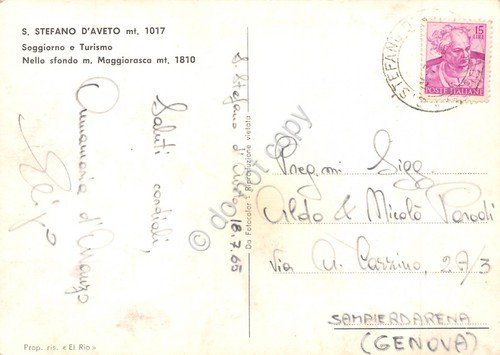 S. STEFANO D'AVETO mt. 1017
Soggiorno e Turismo
Nello sfondo m. Maggiorasca mt. 1810
15
LIRE
POSTE ITALIANE
S. STEFANO
S. Stefano d'Aveto 18.7.65
Saluti cordiali,
Annamaria d'
Da Fotocolor - Riproduzione vietata
do not copy
Preg.mi Sigg.
Aldo & Nicolò Parodi
Via A. 27/3
SAMPIERDARENA
(GENOVA)
Prop. ris. « El Rio »